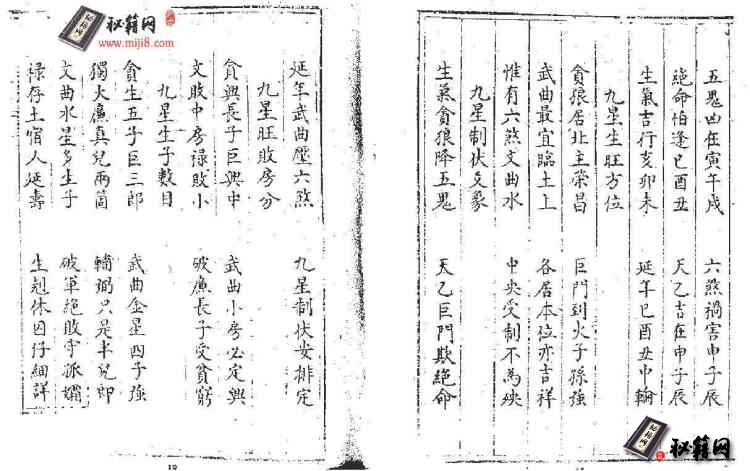 五鬼凶在寅午戌 六煞禍害申子辰
絕命怕逢巳酉丑 天乙吉在申子辰
生氣吉行亥卯未 延年巳酉丑中輪
九星生旺方位
貪狼居北主榮昌 巨門到火子孫強
武曲最宜臨土上 各居本位亦吉祥
惟有六煞文曲水 中央受制不為殃
九星制伏爻象
生氣貪狼降五鬼 天乙巨門欺絕命
延年武曲壓六煞 九星制伏安排定
九星旺敗房分
貪興長子巨興中 武曲小房必定興
文敗中房祿敗小 破廉長子受貧窮
九星生子數目
貪生五子巨三郎 武曲金星四子強
獨火廉真兒兩箇 輔弼只是半兒郎
文曲水星多生子 破軍絕敗守孤孀
祿存土宿人延壽 生剋休囚仔細詳
10
秘籍网
www.miji8.com
秘籍网